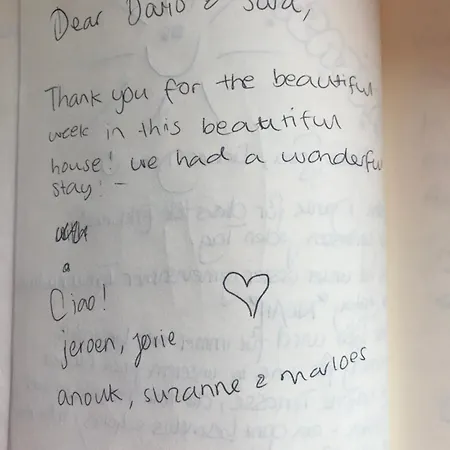 Dear Dario & Sara,
Thank you for the beautiful
week in this beautiful
house! we had a wonderful
stay! -
a
Ciao!
jeroen, jorie,
anouk, suzanne & marloes